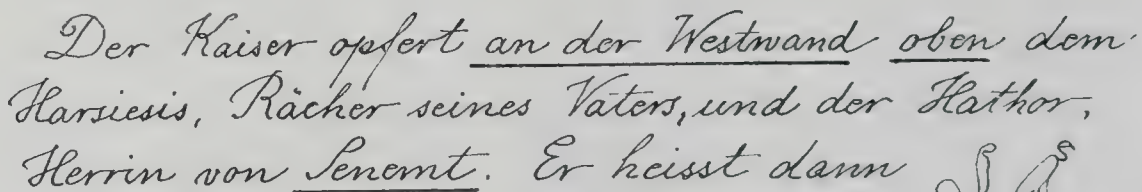 Der Kaiser opfert an der Westwand oben dem
Harsiesis, Rächer seines Vaters, und der Hathor,
Herrin von Senemt. Er heisst dann